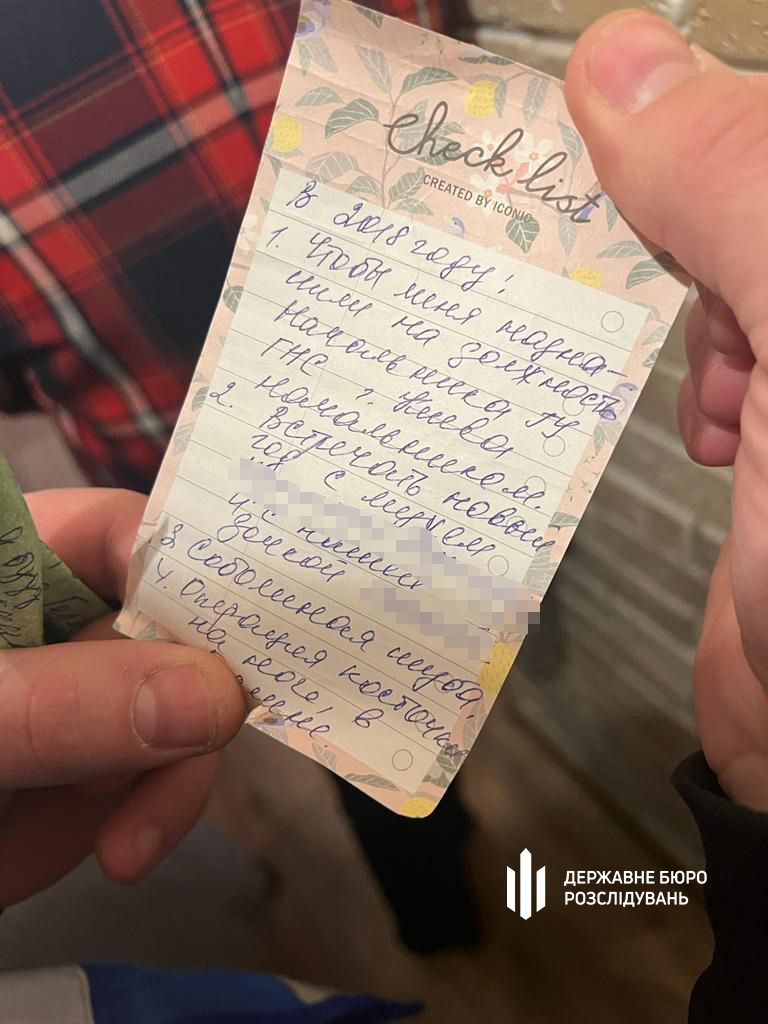 check list
CREATED BY ICONIC
В 2018 году!
1. Чтобы меня назна-
чили на должность
начальника ГУ
ГНС г. Киева
начальником.
2. Встречать новый
год с мужем
и
дочкой
3. Соболиная шуба,
4. Операция косточки
на ноге, в
ДЕРЖАВНЕ БЮРО
РОЗСЛІДУВАНЬ